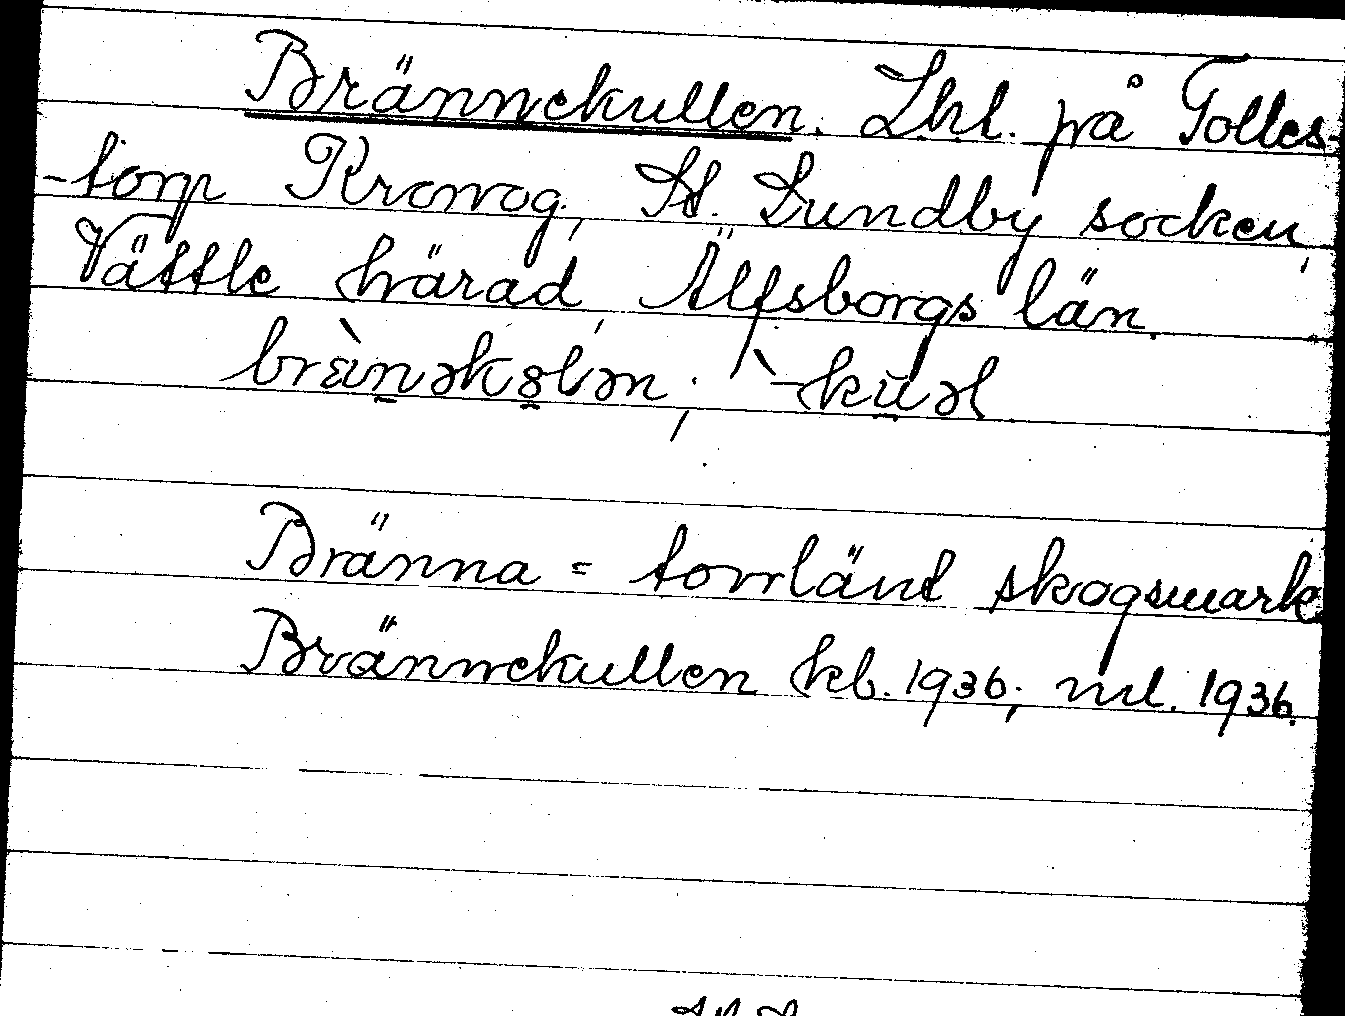 Brännekullen. Lht. på Tolles-
-torp Kronog., St. Lundby socken,
Vättle härad, Älfsborgs län.
brɛ̀n̲əko̲lən; `-ku̲əl
Bränna = torrländ skogsmark.
Brännekullen kb. 1936; ml. 1936.